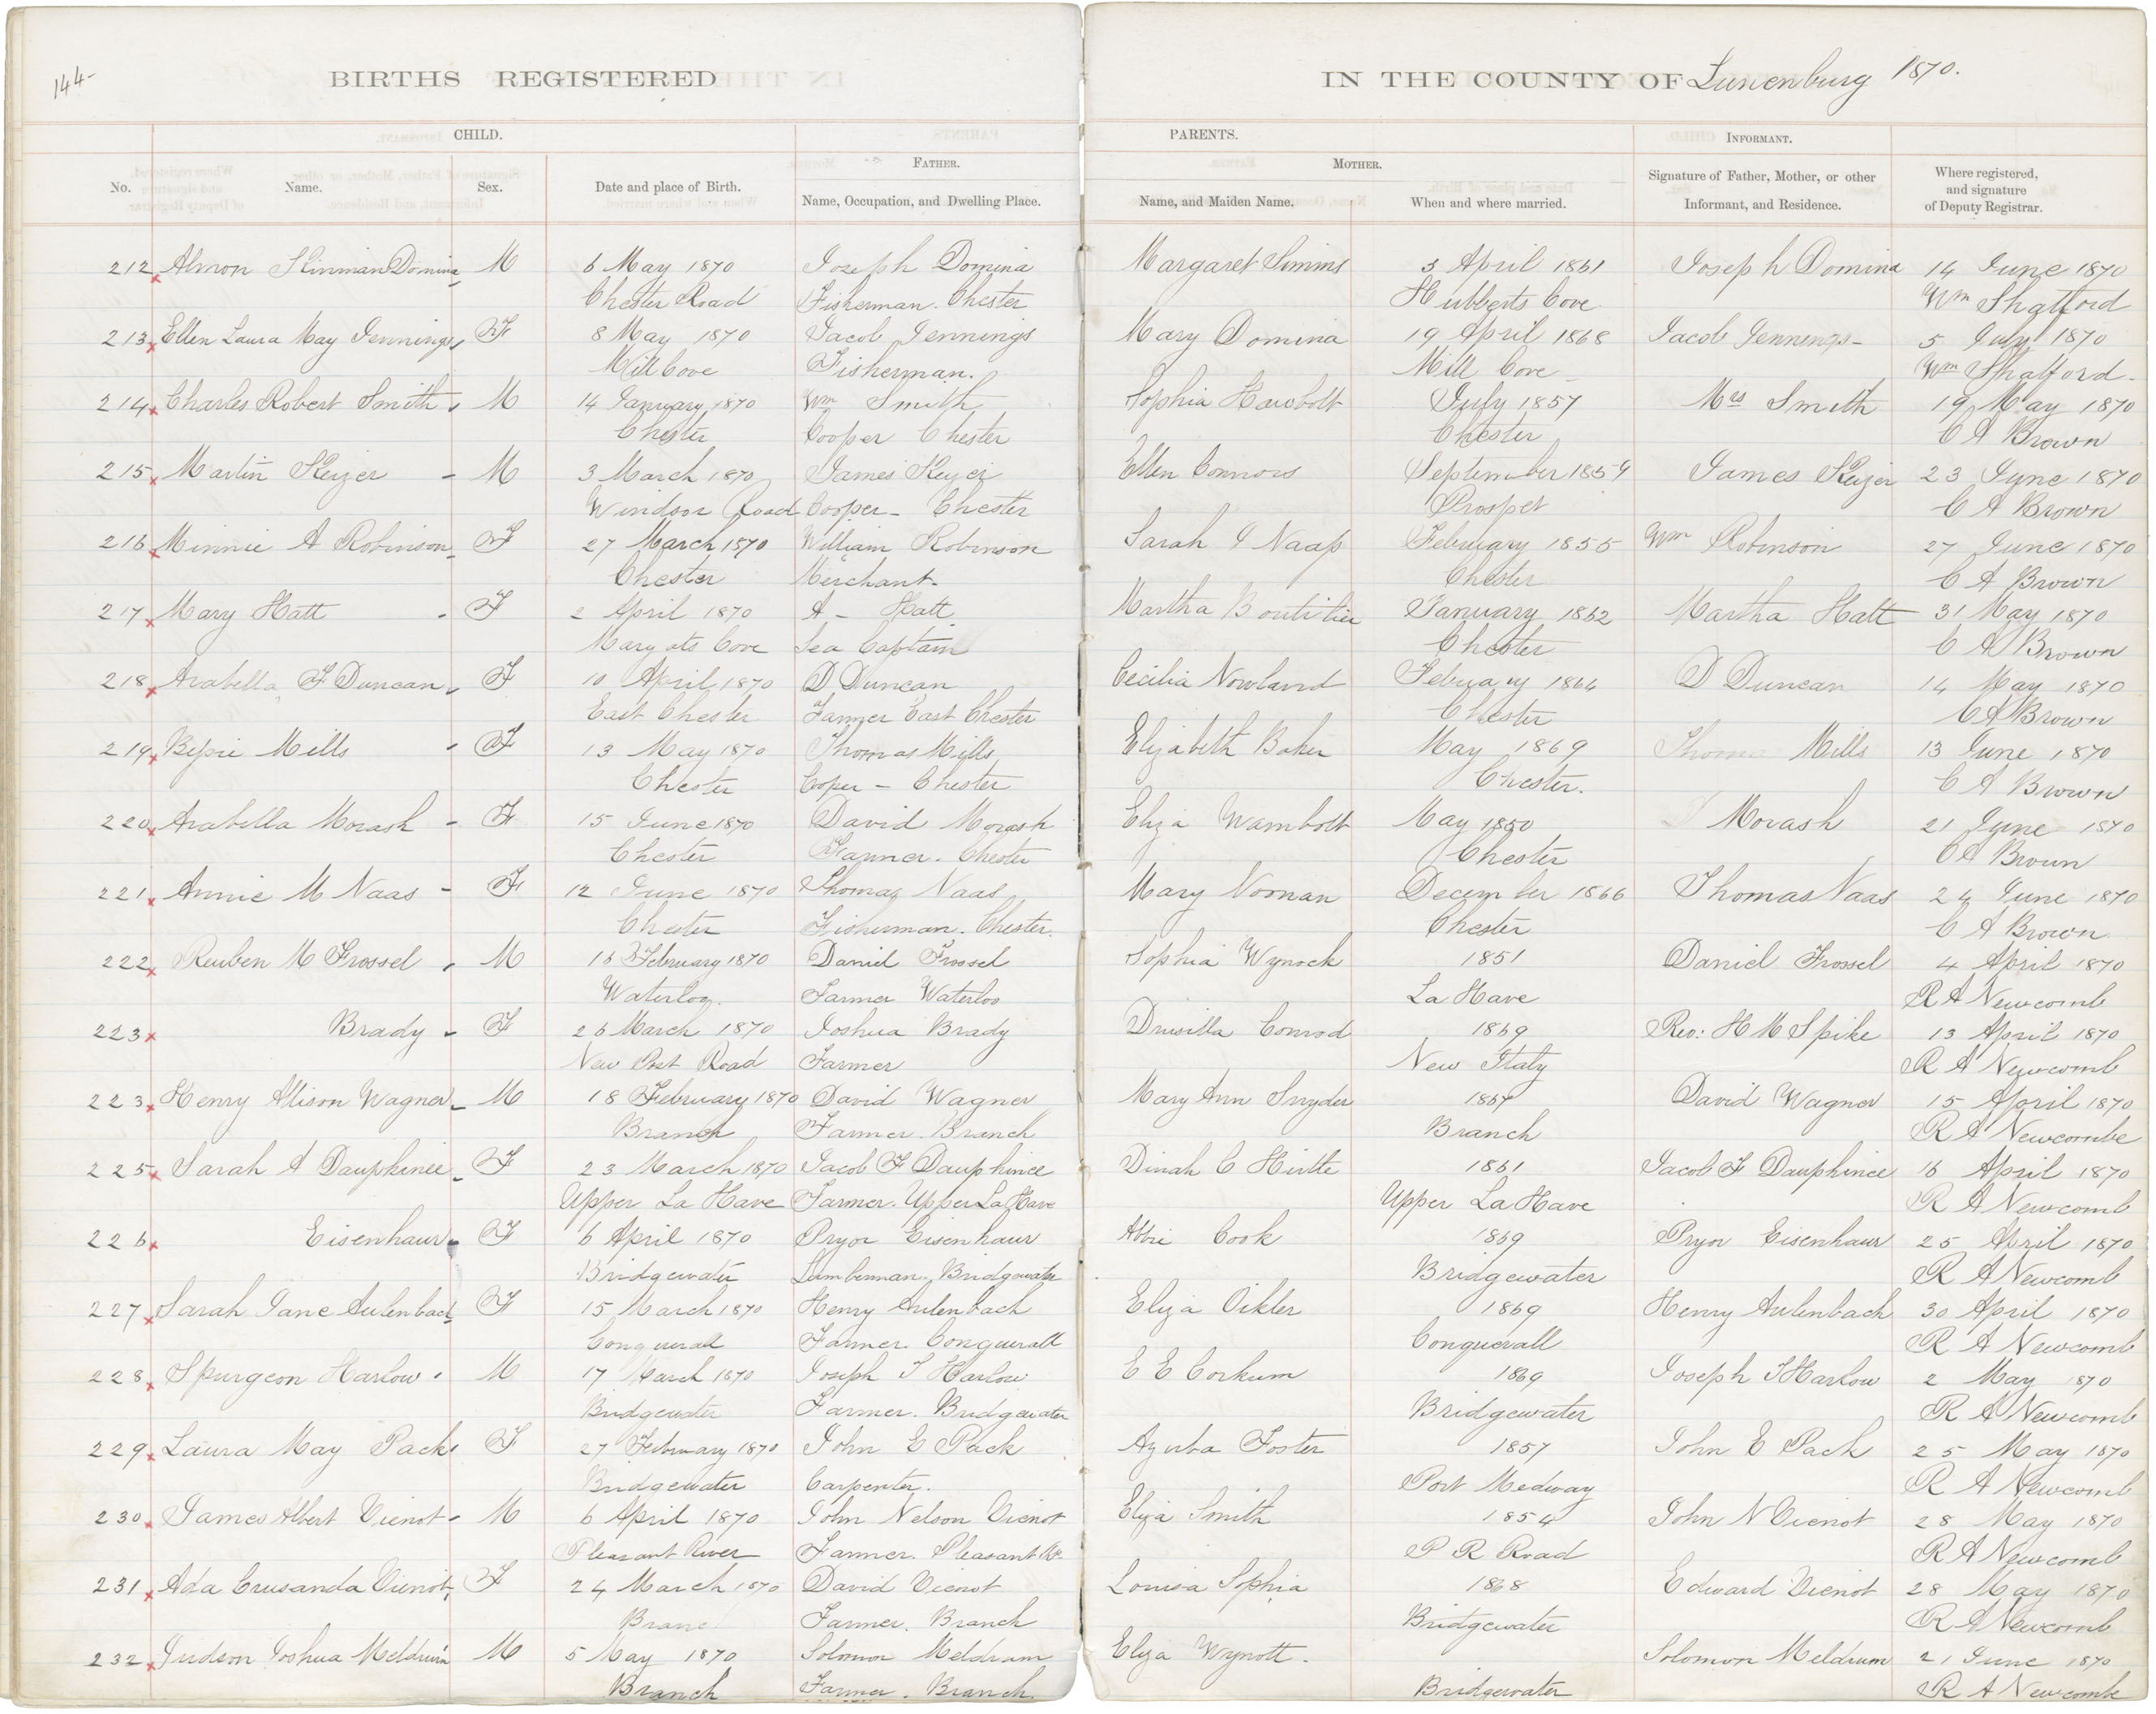 144-
BIRTHS REGISTERED IN THE COUNTY OF Lunenburg 1870.
CHILD. PARENTS. INFORMANT.
No. Name. Sex. Date and place of Birth. FATHER. Name, Occupation, and Dwelling Place. MOTHER. Name, and Maiden Name. When and where married. Signature of Father, Mother, or other Informant, and Residence. Where registered, and signature of Deputy Registrar.
212 Almon Domina M 6 May 1870 Joseph Domina Margaret Simms 3 April 1861 Joseph Domina 14 June 1870
Chester Road Fisherman. Chester Hubberts Cove Wm Shatford
213 Ellen Laura May Jennings F 8 May 1870 Jacob Jennings Mary Domina 19 April 1868 Jacob Jennings- 5 July 1870
Mill Cove Fisherman. Mill Cove Wm Shatford.
214 Charles Robert Smith M 14 January 1870 Wm Smith Sophia Hawbolt July 1857 Mrs Smith 19 May 1870
Chester Cooper Chester Chester C A Brown
215 Martin Keizer - M 3 March 1870 James Keyer Ellen Connors September 1859 James Keizer 23 June 1870
Windsor Road Cooper - Chester Prospet C A Brown
216 Minnie A Robinson F 27 March 1870 William Robinson Sarah J Naap February 1855 Wm Robinson 27 June 1870
Chester Merchant- Chester C A Brown
217 Mary Hatt - F 2 April 1870 A - Hatt Martha Boutilier January 1862 Martha Hatt 31 May 1870
Maryats Cove Sea Captain Chester C A Brown
218 Arabella F Duncan F 10 April 1870 D Duncan Cecilia Nowland Febuary 1864 D Duncan 14 May 1870
East Chester Farmer East Chester Chester C A Brown
219 Bessie Mills - F 13 May 1870 Thomas Mills Elizabeth Baker May 1869 Thomas Mills 13 June 1870
Chester Coper - Chester Chester. C A Brown
220 Arabella Morash - F 15 June 1870 David Morash Eliza Wambolt May 1850 Morash 21 June 1870
Chester Farmer. Chester Chester C A Brown
221 Annie M Naas - F 12 June 1870 Thomas Naas Mary Noonan December 1866 Thomas Naas 24 June 1870
Chester Fisherman. Chester. Chester C A Brown
222 Reuben M Frossel M 16 February 1870 Daniel Frossel Sophia Wynock 1851 Daniel Frossel 4 April 1870
Waterloo. Farmer Waterloo La Have R A Newcomb
223 Brady - F 26 March 1870 Joshua Brady Drusilla Conrod 1869 Rev: H M Spike 13 April 1870
New Post Road Farmer New Italy R A Newcomb
223 Henry Allison Wagner M 18 February 1870 David Wagner Mary Ann Snyder 1867 David Wagner 15 April 1870
Branch Farmer. Branch Branch R A Newcombe
225 Sarah A Dauphinee F 23 March 1870 Jacob F Dauphinee Dinah C Hirtle 1861 Jacob F Dauphinee 16 April 1870
Upper La Have Farmer. Upper La Have Upper La Have R A Newcomb
226 Eisenhaur F 6 April 1870 Pryor Eisenhaur Abbie Cook 1869 Pryor Eisenhaur 25 April 1870
Bridgewater Lumberman. Bridgewater Bridgewater R A Newcomb
227 Sarah Jane Aulenbach F 15 March 1870 Henry Aulenbach Eliza Oikler 1869 Henry Aulenbach 30 April 1870
Conquerall Farmer. Conquerall Conquerall R A Newcomb
228 Spurgeon Harlow M 17 March 1870 Joseph T Harlow E E Corkum 1869 Joseph T Harlow 2 May 1870
Bridgewater Farmer. Bridgewater Bridgewater R A Newcomb
229 Laura May Pack F 27 February 1870 John E Pack Azuba Foster 1857 John E Pack 25 May 1870
Bridgewater Carpenter. Port Medway R A Newcomb
230 James Albert Vienot M 6 April 1870 John Nelson Vienot Eliza Smith 1854 John N Vienot 28 May 1870
Pleasant River Farmer. Pleasant Rr. P R Road R A Newcomb
231 Ada Crusanda Vienot F 24 March 1870 David Vienot Louisa Sophia 1868 Edward Vienot 28 May 1870
Branc Farmer. Branch Bridgewater R A Newcomb
232 Judson Joshua Meldrum M 5 May 1870 Solomon Meldrum Eliza Wynott. Solomon Meldrum 21 June 1870
Branch Farmer. Branch. Bridgewater R A Newcombe